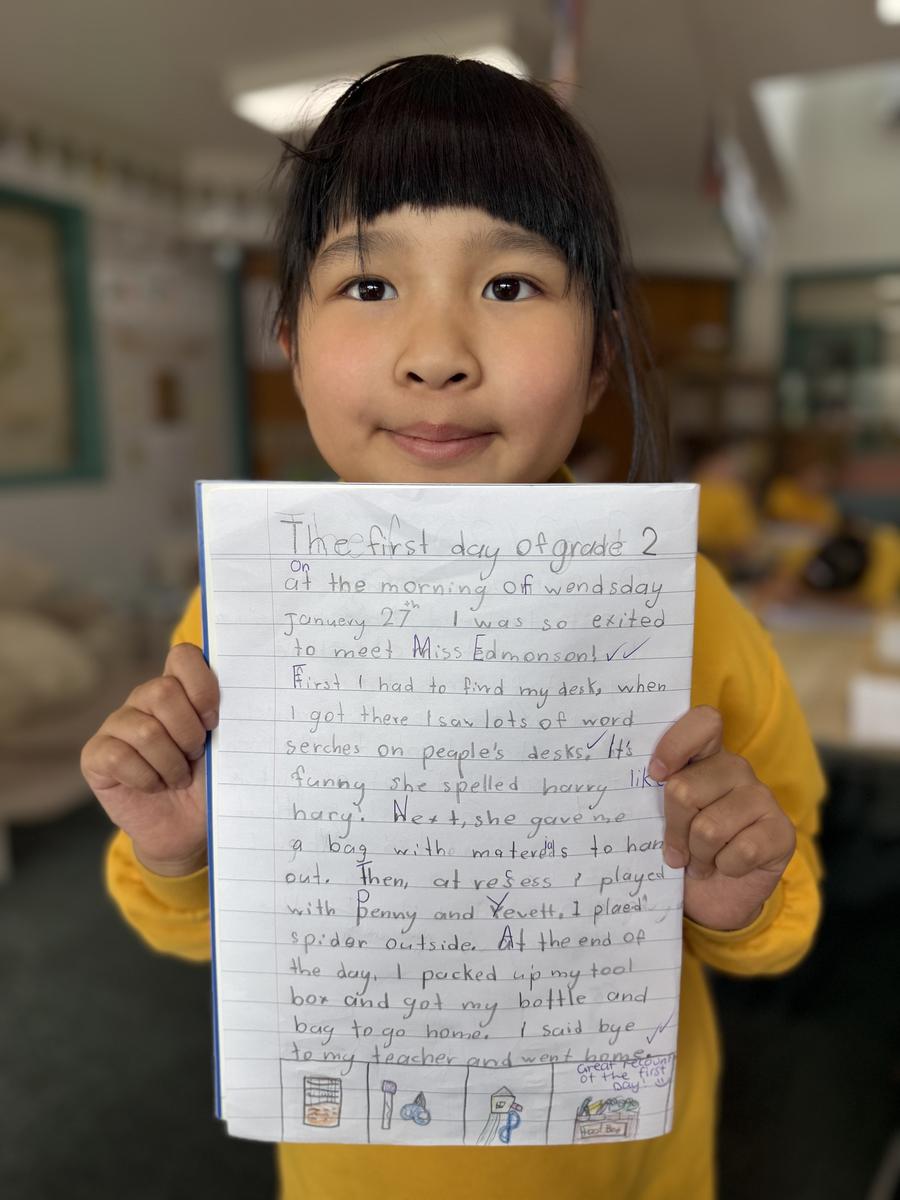 The first day of grade 2
On
at the morning of wendsday
January 27th I was so exited
to meet Miss Edmonson!
First I had to find my desk, when
I got there I saw lots of word
serches on peaple's desks. It's
funny she spelled harry like
hary. Next, she gave me
a bag with materials to han
out. Then, at resess I played
with Penny and Yevett. I plaed
spider outside. At the end of
the day, I packed up my tool
box and got my bottle and
bag to go home. I said bye
to my teacher and went home.
Great recount
of the first
Day!
Tool Box